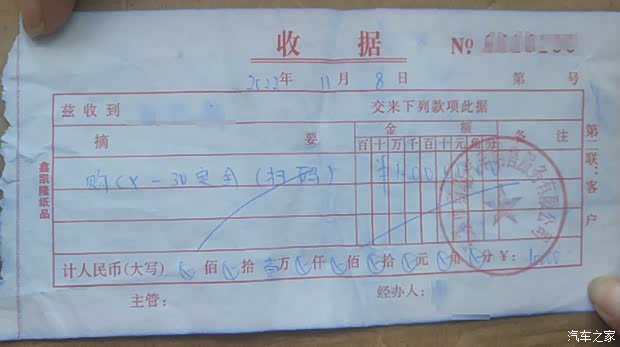 收 据 №
2022年 11月 8日 第 号
兹收到 交来下列款项此据
摘 要 金 额 备 注
百 十 万 千 百 十 元 角 分
购CX-30定金(扫码)
计人民币(大写) 佰 拾 壹万 仟 佰 拾 元 角 分 ¥:
主管: 经办人:
第二联:客户
鑫凯隆纸品
汽车之家